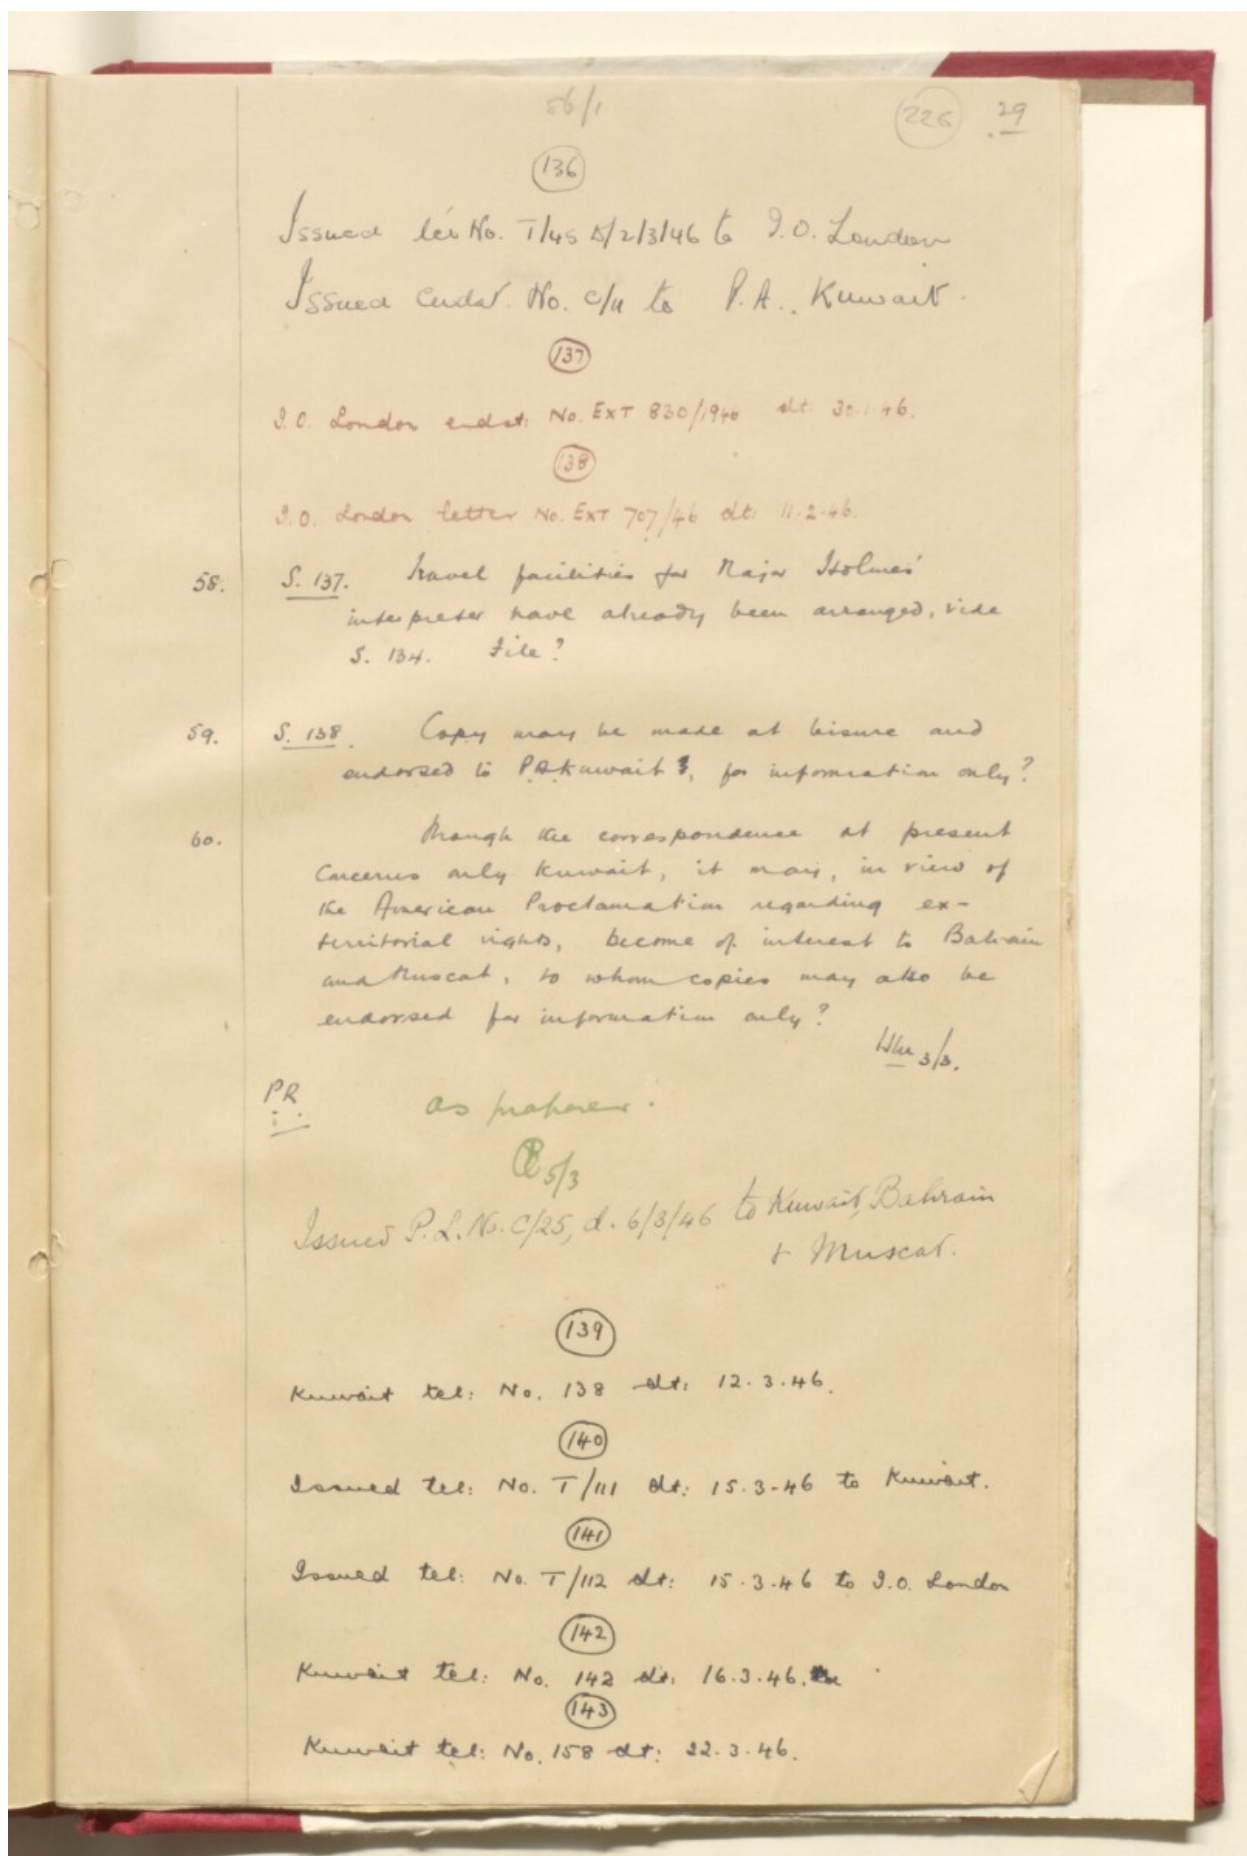 56/1
226 29
136
Issued No. T/45 2/3/46 to I.O. London
Issued No. C/11 to P.A., Kuwait.
137
I.O. London endst: No. EXT 830/1946 dt: 30.1.46.
138
I.O. London letter No. EXT 707/46 dt: 11.2.46.
58. S. 137. Travel facilities for Major Holmes'
interpreter have already been arranged, vide
S. 134. File?
59. S. 138. Copy may be made at leisure and
endorsed to P.A. Kuwait, for information only?
60. Though the correspondence at present
concerns only Kuwait, it may, in view of
the American Proclamation regarding ex-
territorial rights, become of interest to Bahrain
and Muscat, to whom copies may also be
endorsed for information only?
3/3.
PR
as proposed.
5/3
Issued P.L. No. C/25, d. 6/3/46 to Kuwait, Bahrain
& Muscat.
139
Kuwait tel: No. 138 dt: 12.3.46.
140
Issued tel: No. T/111 dt: 15.3.46 to Kuwait.
141
Issued tel: No. T/112 dt: 15.3.46 to I.O. London
142
Kuwait tel: No. 142 dt: 16.3.46.
143
Kuwait tel: No. 158 dt: 22.3.46.